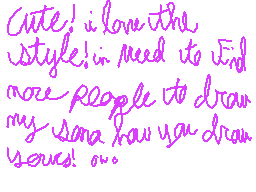 cute! i love the
style! in need to find
more people to draw
my sona how you draw
yours! owo